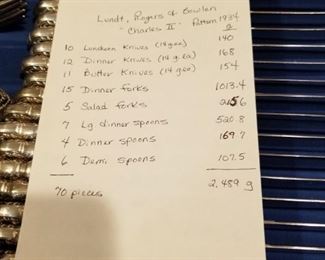 Lundt, Rogers & Bowlen
"Charles II" Pattern 1934
g
10 Luncheon Knives (14 g ea) 140
12 Dinner Knives (14 g. ea) 168
11 Butter Knives (14 g ea) 154
15 Dinner forks 1013.4
5 Salad forks 215.6
7 Lg dinner spoons 520.8
4 Dinner spoons 169.7
6 Demi spoons 107.5
70 pieces 2,489 g